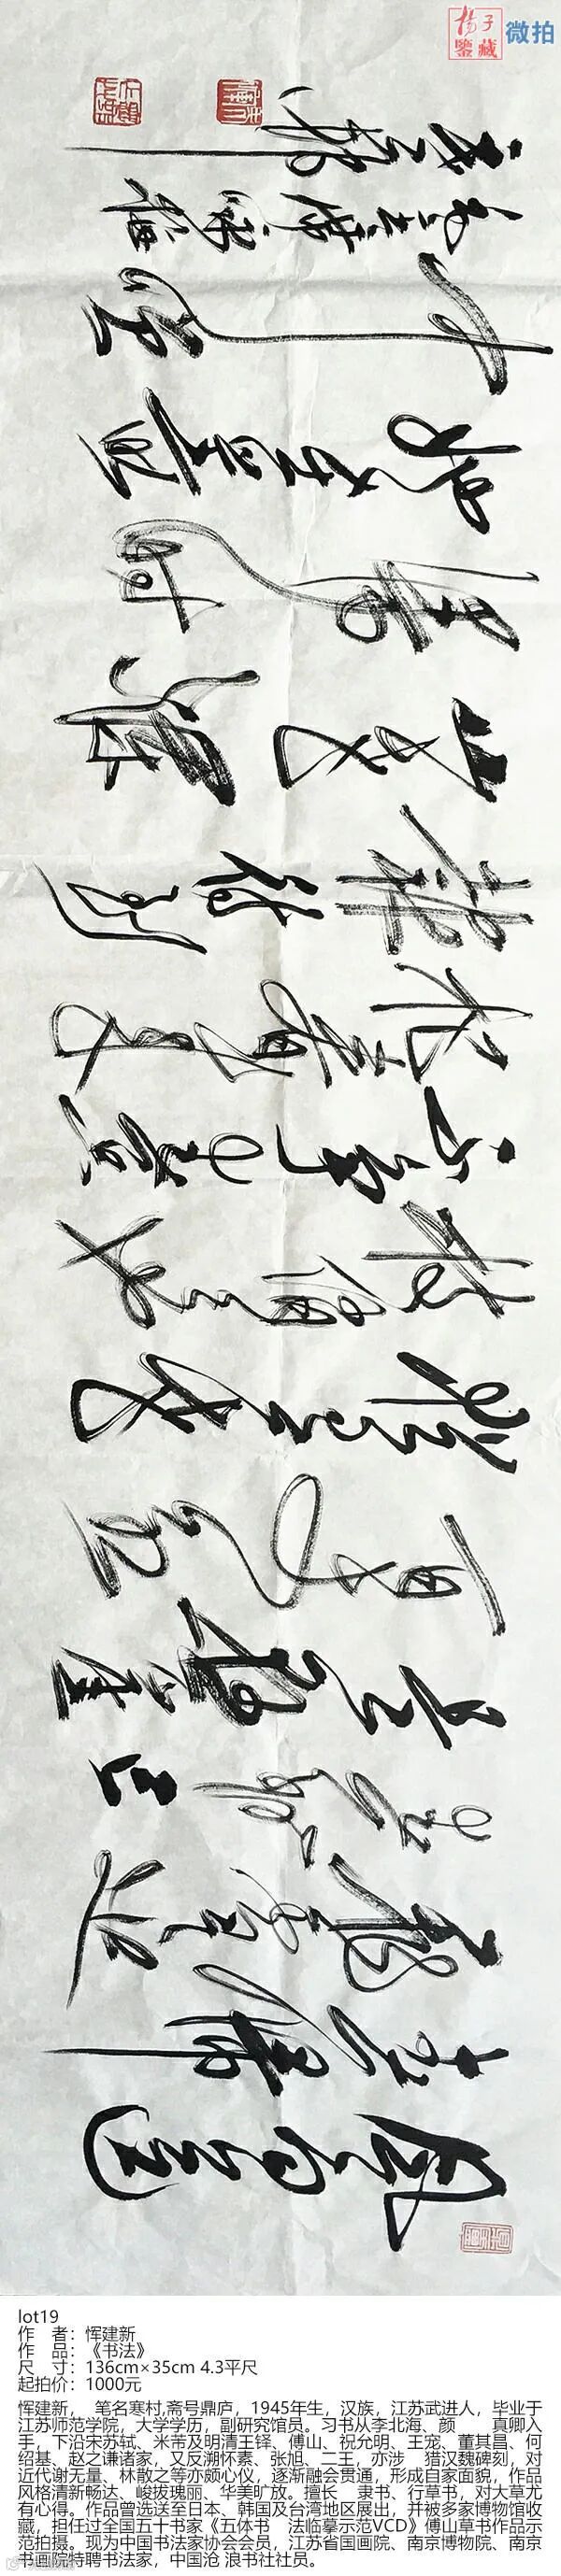 扬子
鉴藏
微拍
风雨送
春归
飞雪迎
春到已
是悬崖
百丈冰
犹有花
枝俏俏也
不争春只
把春来
报待到
山花烂
漫时
她在丛
中笑
毛主席咏梅
lot19
作 者：恽建新
作 品：《书法》
尺 寸：136cm×35cm 4.3平尺
起拍价：1000元
恽建新， 笔名寒村,斋号鼎庐，1945年生，汉族，江苏武进人，毕业于
江苏师范学院，大学学历，副研究馆员。习书从李北海、颜 真卿入
手，下沿宋苏轼、米芾及明清王铎、傅山、祝允明、王宠、董其昌、何
绍基、赵之谦诸家，又反溯怀素、张旭、二王，亦涉 猎汉魏碑刻，对
近代谢无量、林散之等亦颇心仪，逐渐融会贯通，形成自家面貌，作品
风格清新畅达、峻拔瑰丽、华美旷放。擅长 隶书、行草书，对大草尤
有心得。作品曾选送至日本、韩国及台湾地区展出，并被多家博物馆收
藏，担任过全国五十书家《五体书 法临摹示范VCD》傅山草书作品示
范拍摄。现为中国书法家协会会员，江苏省国画院、南京博物院、南京
书画院特聘书法家，中国沧 浪书社社员。